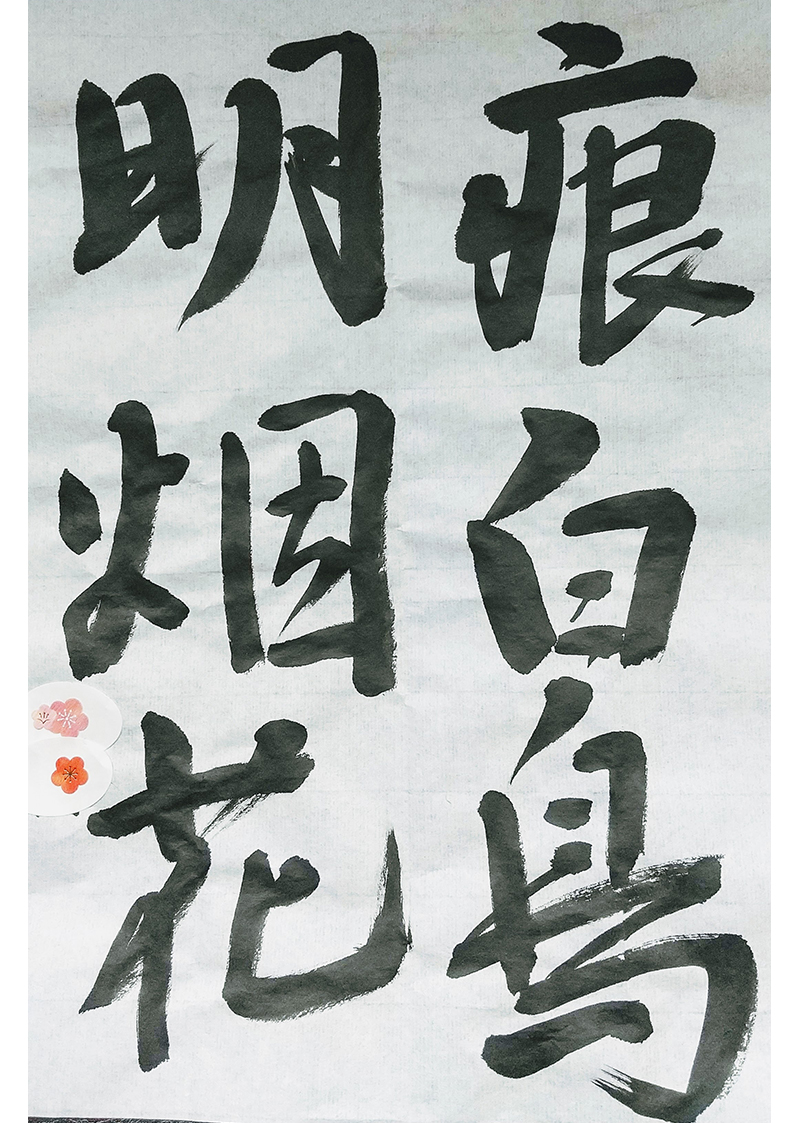 痕白鳥
明烟花